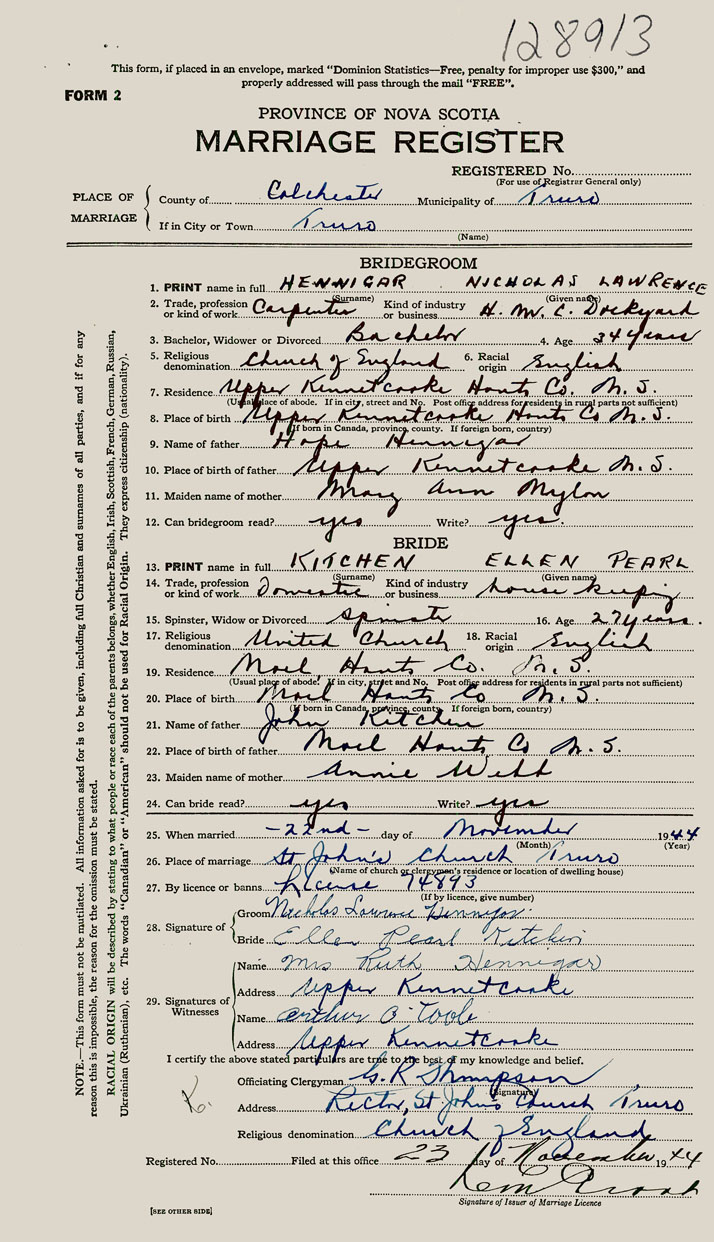 128913
This form, if placed in an envelope, marked “Dominion Statistics—Free, penalty for improper use $300,” and
properly addressed will pass through the mail “FREE”.
FORM 2
PROVINCE OF NOVA SCOTIA
MARRIAGE REGISTER
REGISTERED No.
(For use of Registrar General only)
PLACE OF MARRIAGE
County of Colchester Municipality of Truro
If in City or Town Truro
(Name)
BRIDEGROOM
1. PRINT name in full HENNIGAR NICHOLAS LAWRENCE
(Surname) (Given name)
2. Trade, profession or kind of work Carpenter Kind of industry or business H. M. C. Dockyard
3. Bachelor, Widower or Divorced Bachelor 4. Age 34 years
5. Religious denomination Church of England 6. Racial origin English
7. Residence Upper Kennetcooke Hants Co. N. S.
(Usual place of abode. If in city, street and No. Post office address for residents in rural parts not sufficient)
8. Place of birth Upper Kennetcooke Hants Co N. S.
(If born in Canada, province, county. If foreign born, country)
9. Name of father Hope Hennigar
10. Place of birth of father Upper Kennetcooke N. S.
11. Maiden name of mother Mary Ann Mylon
12. Can bridegroom read? yes Write? yes.
BRIDE
13. PRINT name in full KITCHEN ELLEN PEARL
(Surname) (Given name)
14. Trade, profession or kind of work Domestic Kind of industry or business house keeping
15. Spinster, Widow or Divorced Spinster 16. Age 27 years.
17. Religious denomination United Church 18. Racial origin English
19. Residence Noel, Hants Co. N. S.
(Usual place of abode. If in city, street and No. Post office address for residents in rural parts not sufficient)
20. Place of birth Noel Hants Co N. S.
(If born in Canada, province, county. If foreign born, country)
21. Name of father John Kitchen
22. Place of birth of father Noel Hants Co N. S.
23. Maiden name of mother Annie Webb
24. Can bride read? yes Write? yes
25. When married -22nd- day of November 1944
(Month) (Year)
26. Place of marriage St John's Church Truro
(Name of church or clergymen's residence or location of dwelling house)
27. By licence or banns License 74893
(If by licence, give number)
28. Signature of
Groom Nicholas Lawrence Hennigar
Bride Ellen Pearl Kitchen
29. Signatures of Witnesses
Name Mrs Ruth Hennigar
Address Upper Kennetcooke
Name Arthur O'Toole
Address Upper Kennetcooke
I certify the above stated particulars are true to the best of my knowledge and belief.
Officiating Clergyman G. R Thompson
(Signature)
Address Rector, St John's Church Truro
Religious denomination Church of England
Registered No. Filed at this office 23 day of November 1944
Signature of Issuer of Marriage Licence
[SEE OTHER SIDE]
NOTE.—This form must not be mutilated. All information asked for is to be given, including full Christian and surnames of all parties, and if for any
reason this is impossible, the reason for the omission must be stated.
RACIAL ORIGIN will be described by stating to what people or race each of the parents belongs, whether English, Irish, Scottish, French, German, Russian,
Ukrainian (Ruthenian), etc. The words “Canadian” or “American” should not be used for Racial Origin. They express citizenship (nationality).